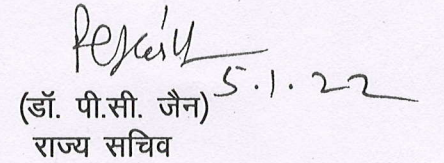 5.1.22
(डॉ. पी.सी. जैन)
राज्य सचिव